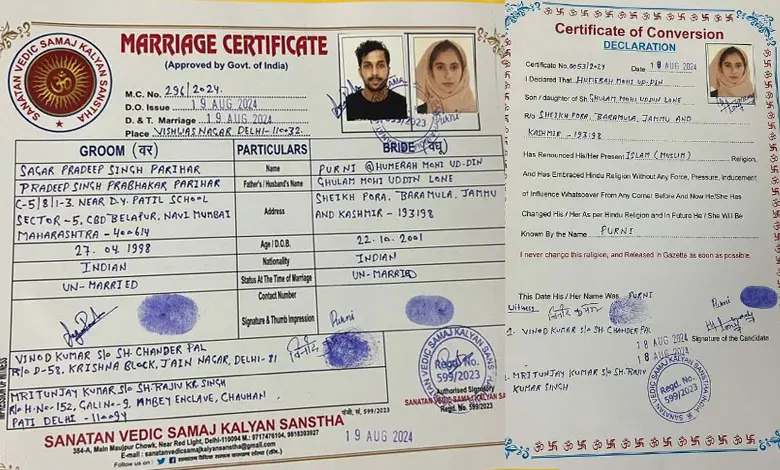 SANATAN VEDIC SAMAJ KALYAN SANSTHA
MARRIAGE CERTIFICATE
(Approved by Govt. of India)
M.C. No. 296/2024.
D.O. Issue 19 AUG 2024
D. & T. Marriage 19 AUG 2024
Place VISHWAS NAGAR, DELHI-110032.
GROOM (वर) PARTICULARS BRIDE (वधू)
SAGAR PRADEEP SINGH PARIHAR Name PURNI @HUMERAH MOHI UD-DIN
PRADEEP SINGH PRABHAKAR PARIHAR Father's / Husband's Name GHULAM MOHI UDDIN LONE
C-5/8/1-3. NEAR D.Y. PATIL SCHOOL
SECTOR -5. CBD BELAPUR, NAVI MUMBAI
MAHARASHTRA - 400614
Address
SHEIKH PORA, BARAMULA, JAMMU
AND KASHMIR - 193198
27.04.1998 Age / D.O.B. 22.10.2001
INDIAN Nationality INDIAN
UN-MARRIED Status At The Time of Marriage UN-MARRIED
Contact Number
Signature & Thumb Impression Purni
IMPRESSION OF WITNESS
VINOD KUMAR S/o SH. CHANDER PAL
R/o D-58. KRISHNA BLOCK, JAIN NAGAR, DELHI-81
MRITUNJAY KUMAR S/o SH. RAJIV KR. SINGH
R/o H-No-152, GALI NO-9, AMBEY ENCLAVE, CHAUHAN
PATI DELHI - 110094
SANATAN VEDIC SAMAJ KALYAN SANSTHA
Regd. No.
599/2023
Authorised Signatory
SANATAN VEDIC SAMAJ KALYAN SANSTHA
Regd. No. 599/2023
SANATAN VEDIC SAMAJ KALYAN SANSTHA
384-A, Main Maujpur Chowk, Near Red Light, Delhi-110094 M.: 9717476104, 9818303927
E-mail : sanatanvedicsamajkalyansanstha@gmail.com
Follow us on :
19 AUG 2024
Certificate of Conversion
DECLARATION
Certificate No. 0053/24 Date 18 AUG 2024
I Declared That HUMERAH MOHI UD-DIN
Son / daughter of Sh. GHULAM MOHI UDDIN LONE
R/o SHEIKH PORA, BARAMULA, JAMMU AND
KASHMIR - 193198
Has Renounced His/Her Present ISLAM (MUSLIM) Religion,
And Has Embraced Hindu Religion Without Any Force, Pressure, inducement
of Influence Whatsoever From Any Corner Before And Now He/She Has
Changed His / Her As per Hindu Religion and In Future He / She Will Be
Known By the Name PURNI
I never change this religion, and Released in Gazette as soon as possible.
This Date His / Her Name Was PURNI
Witness
Purni
1. VINOD KUMAR S/o SH. CHANDER PAL
18 AUG 2024
Signature of the Candidate
18 AUG 2024
2. MRITUNJAY KUMAR S/o SH. RAJIV
KUMAR SINGH